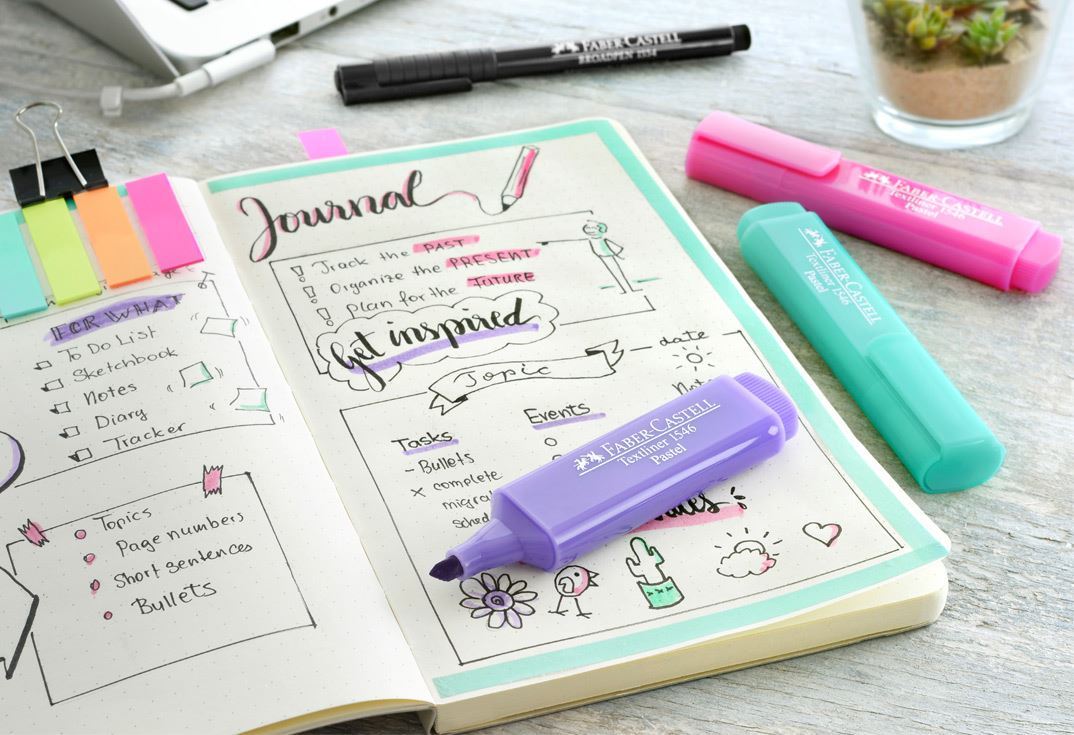 FABER-CASTELL
BROADPEN 1554
FABER-CASTELL
Textliner 1546
Pastel
FABER-CASTELL
Textliner 1546
Pastel
FOR WHAT
To Do List
Sketchbook
Notes
Diary
Tracker
Topics
Page numbers
Short sentences
Bullets
Journal
! Track the PAST
! Organize the PRESENT
! Plan for the FUTURE
Get inspired
Topic
date
Tasks
- Bullets
× complete
Events
FABER-CASTELL
Textliner 1546
Pastel